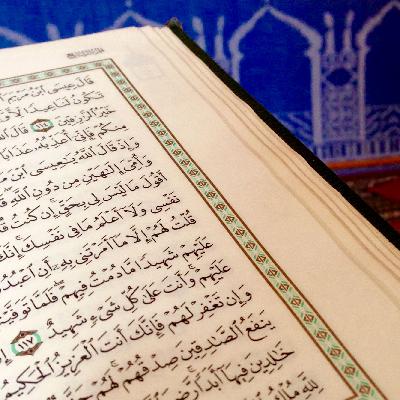 قَالَ عِيسَى ٱبْنُ مَرْيَمَ
تَكُونُ لَنَا عِيدًا
خَيْرُ ٱلرَّٰزِقِينَ ١١٤ قَالَ
مِنكُمْ فَإِنِّىٓ أُعَذِّبُهُۥ عَذَابًا
وَإِذْ قَالَ ٱللَّهُ يَٰعِيسَى ٱبْنَ
وَأُمِّىَ إِلَٰهَيْنِ مِن دُونِ ٱللَّهِ
أَقُولَ مَا لَيْسَ لِى بِحَقٍّ إِن كُنتُ
نَفْسِى وَلَآ أَعْلَمُ مَا فِى نَفْسِكَ
قُلْتُ لَهُمْ إِلَّا مَآ أَمَرْتَنِى بِهِۦٓ أَنِ ٱعْبُدُوا۟
عَلَيْهِمْ شَهِيدًا مَّا دُمْتُ فِيهِمْ فَلَمَّا
عَلَيْهِمْ وَأَنتَ عَلَىٰ كُلِّ شَىْءٍ شَهِيدٌ ١١٧
وَإِن تَغْفِرْ لَهُمْ فَإِنَّكَ أَنتَ ٱلْعَزِيزُ ٱلْحَكِيمُ
يَنفَعُ ٱلصَّٰدِقِينَ صِدْقُهُمْ لَهُمْ
خَٰلِدِينَ فِيهَآ أَبَدًا
لِلَّهِ مُلْكُ